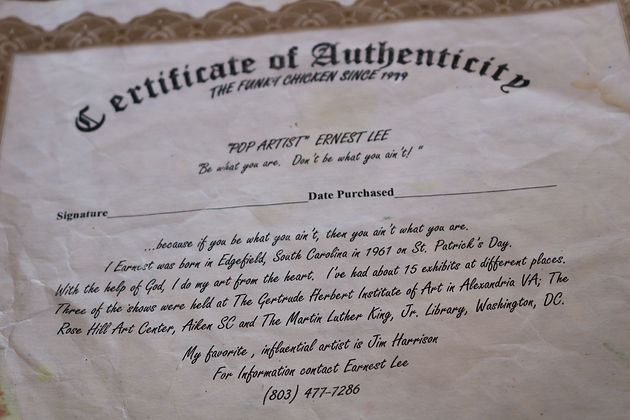 Certificate of Authenticity
THE FUNKY CHICKEN SINCE 1999
"POP ARTIST" ERNEST LEE
"Be what you are. Don't be what you ain't! "
Signature Date Purchased
...because if you be what you ain't, then you ain't what you are.
I Earnest was born in Edgefield, South Carolina in 1961 on St. Patrick's Day.
With the help of God, I do my art from the heart. I've had about 15 exhibits at different places.
Three of the shows were held at The Gertrude Herbert Institute of Art in Alexandria VA; The
Rose Hill Art Center, Aiken SC and The Martin Luther King, Jr. Library, Washington, DC.
My favorite , influential artist is Jim Harrison
For Information contact Earnest Lee
(803) 477-7286